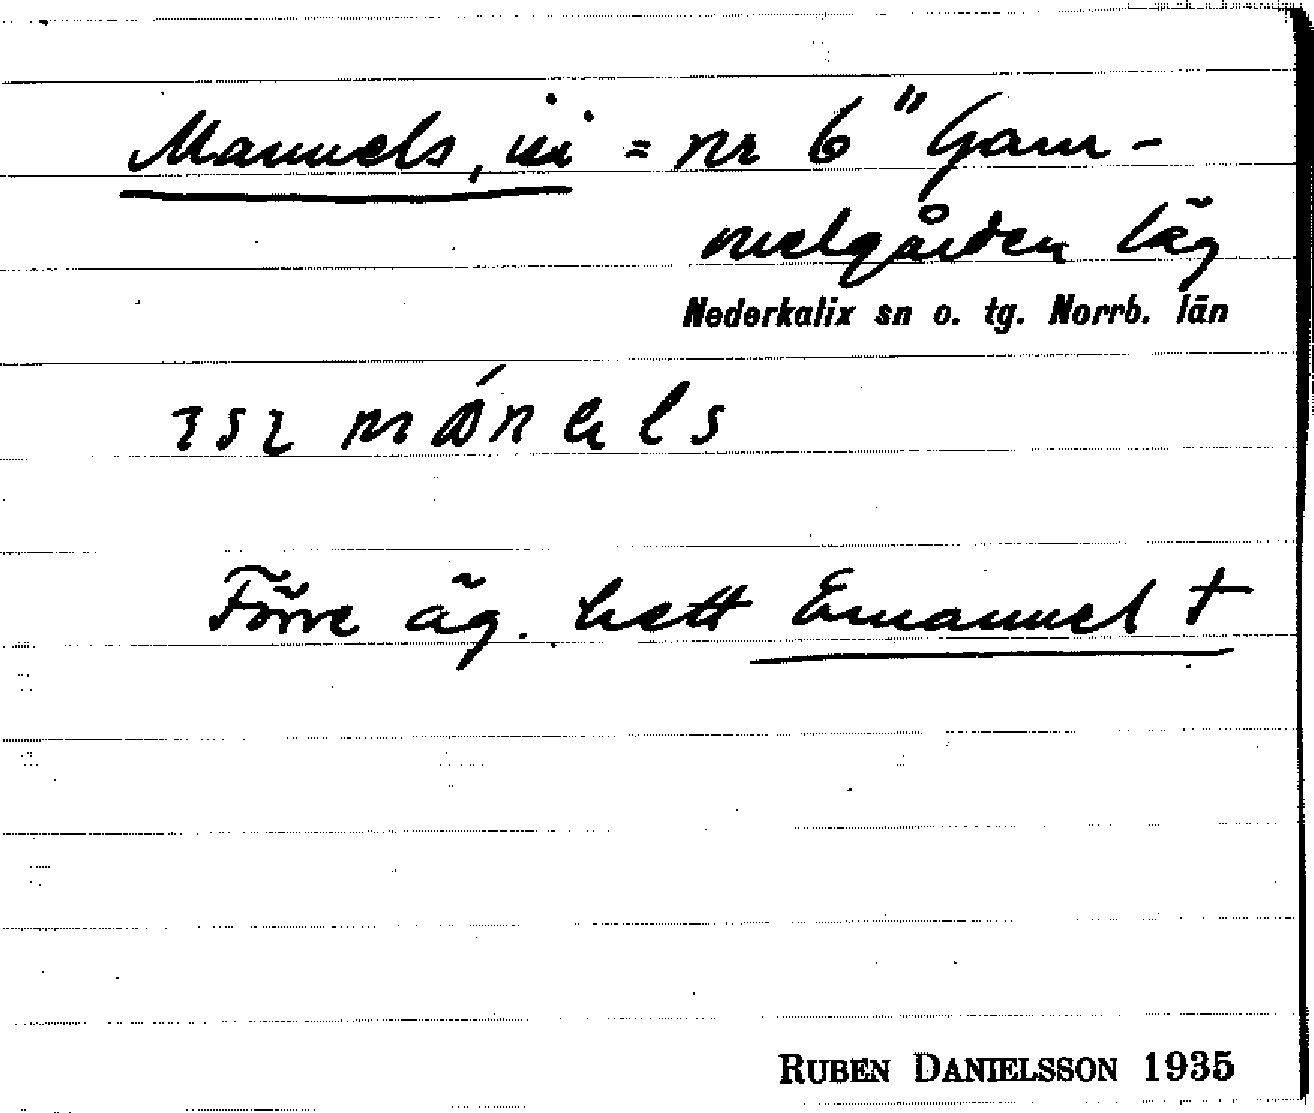 Manuels, i = nr 6 "Gam-
melgården läg
Nederkalix sn o. tg. Norrb. län
mánəls
Förre äg. hett Emanuel †
RUBEN DANIELSSON 1935